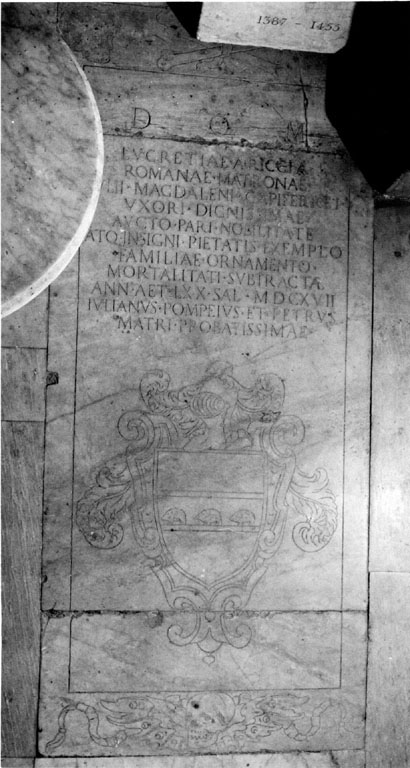 1387 - 1455
D O M
ROMANAE · MATRONAE
MAGDALENI · CAPIFERREI ·
VXORI ·
AVCTO · PARI · NOBILITATE
ATQ · INSIGNI · PIETATIS · EXEMPLO
FAMILIAE · ORNAMENTO ·
MORTALITATI · SVBTRACTÆ
ANN · AET · LXX · SAL · MDCXVII
IVLIANVS · POMPEIVS · ET · PETRVS
MATRI · PROBATISSIMAE ·